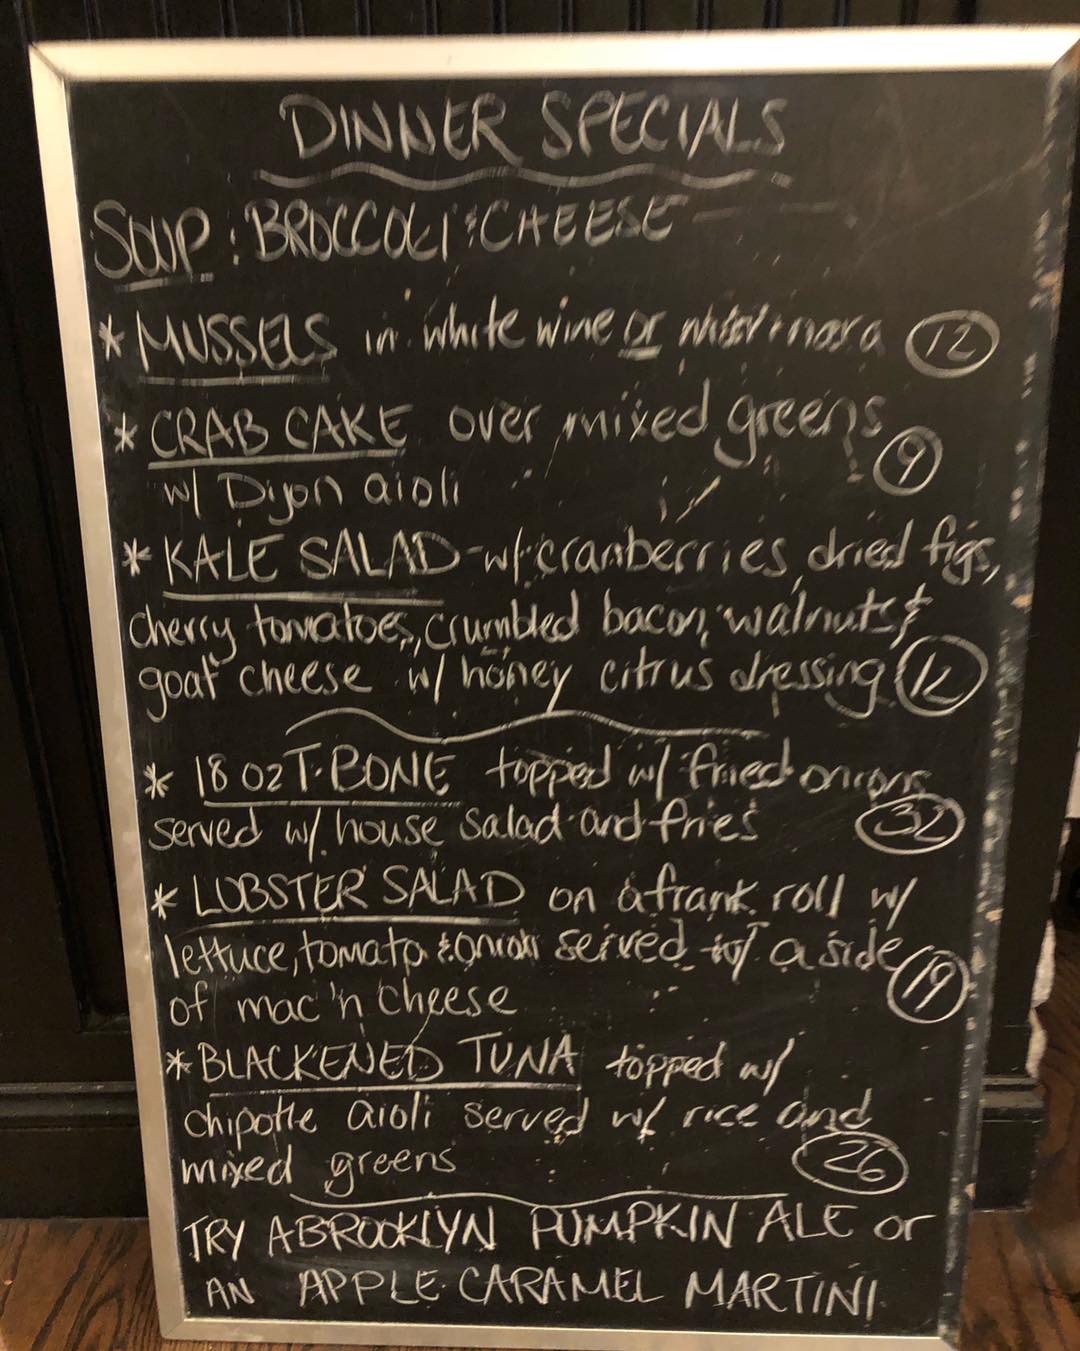 DINNER SPECIALS
SOUP: BROCCOLI & CHEESE
* MUSSELS in white wine or marinara (12)
* CRAB CAKE over mixed greens
w/ Dijon aioli (9)
* KALE SALAD - w/ cranberries, dried figs,
cherry tomatoes, crumbled bacon, walnuts &
goat cheese w/ honey citrus dressing (12)
* 18 oz T-BONE topped w/ fried onions
served w/ house salad and fries (32)
* LOBSTER SALAD on a frank roll w/
lettuce, tomato & onion served w/ a side
of mac 'n cheese (19)
* BLACKENED TUNA topped w/
chipotle aioli served w/ rice and
mixed greens (26)
TRY A BROOKLYN PUMPKIN ALE or
AN APPLE CARAMEL MARTINI